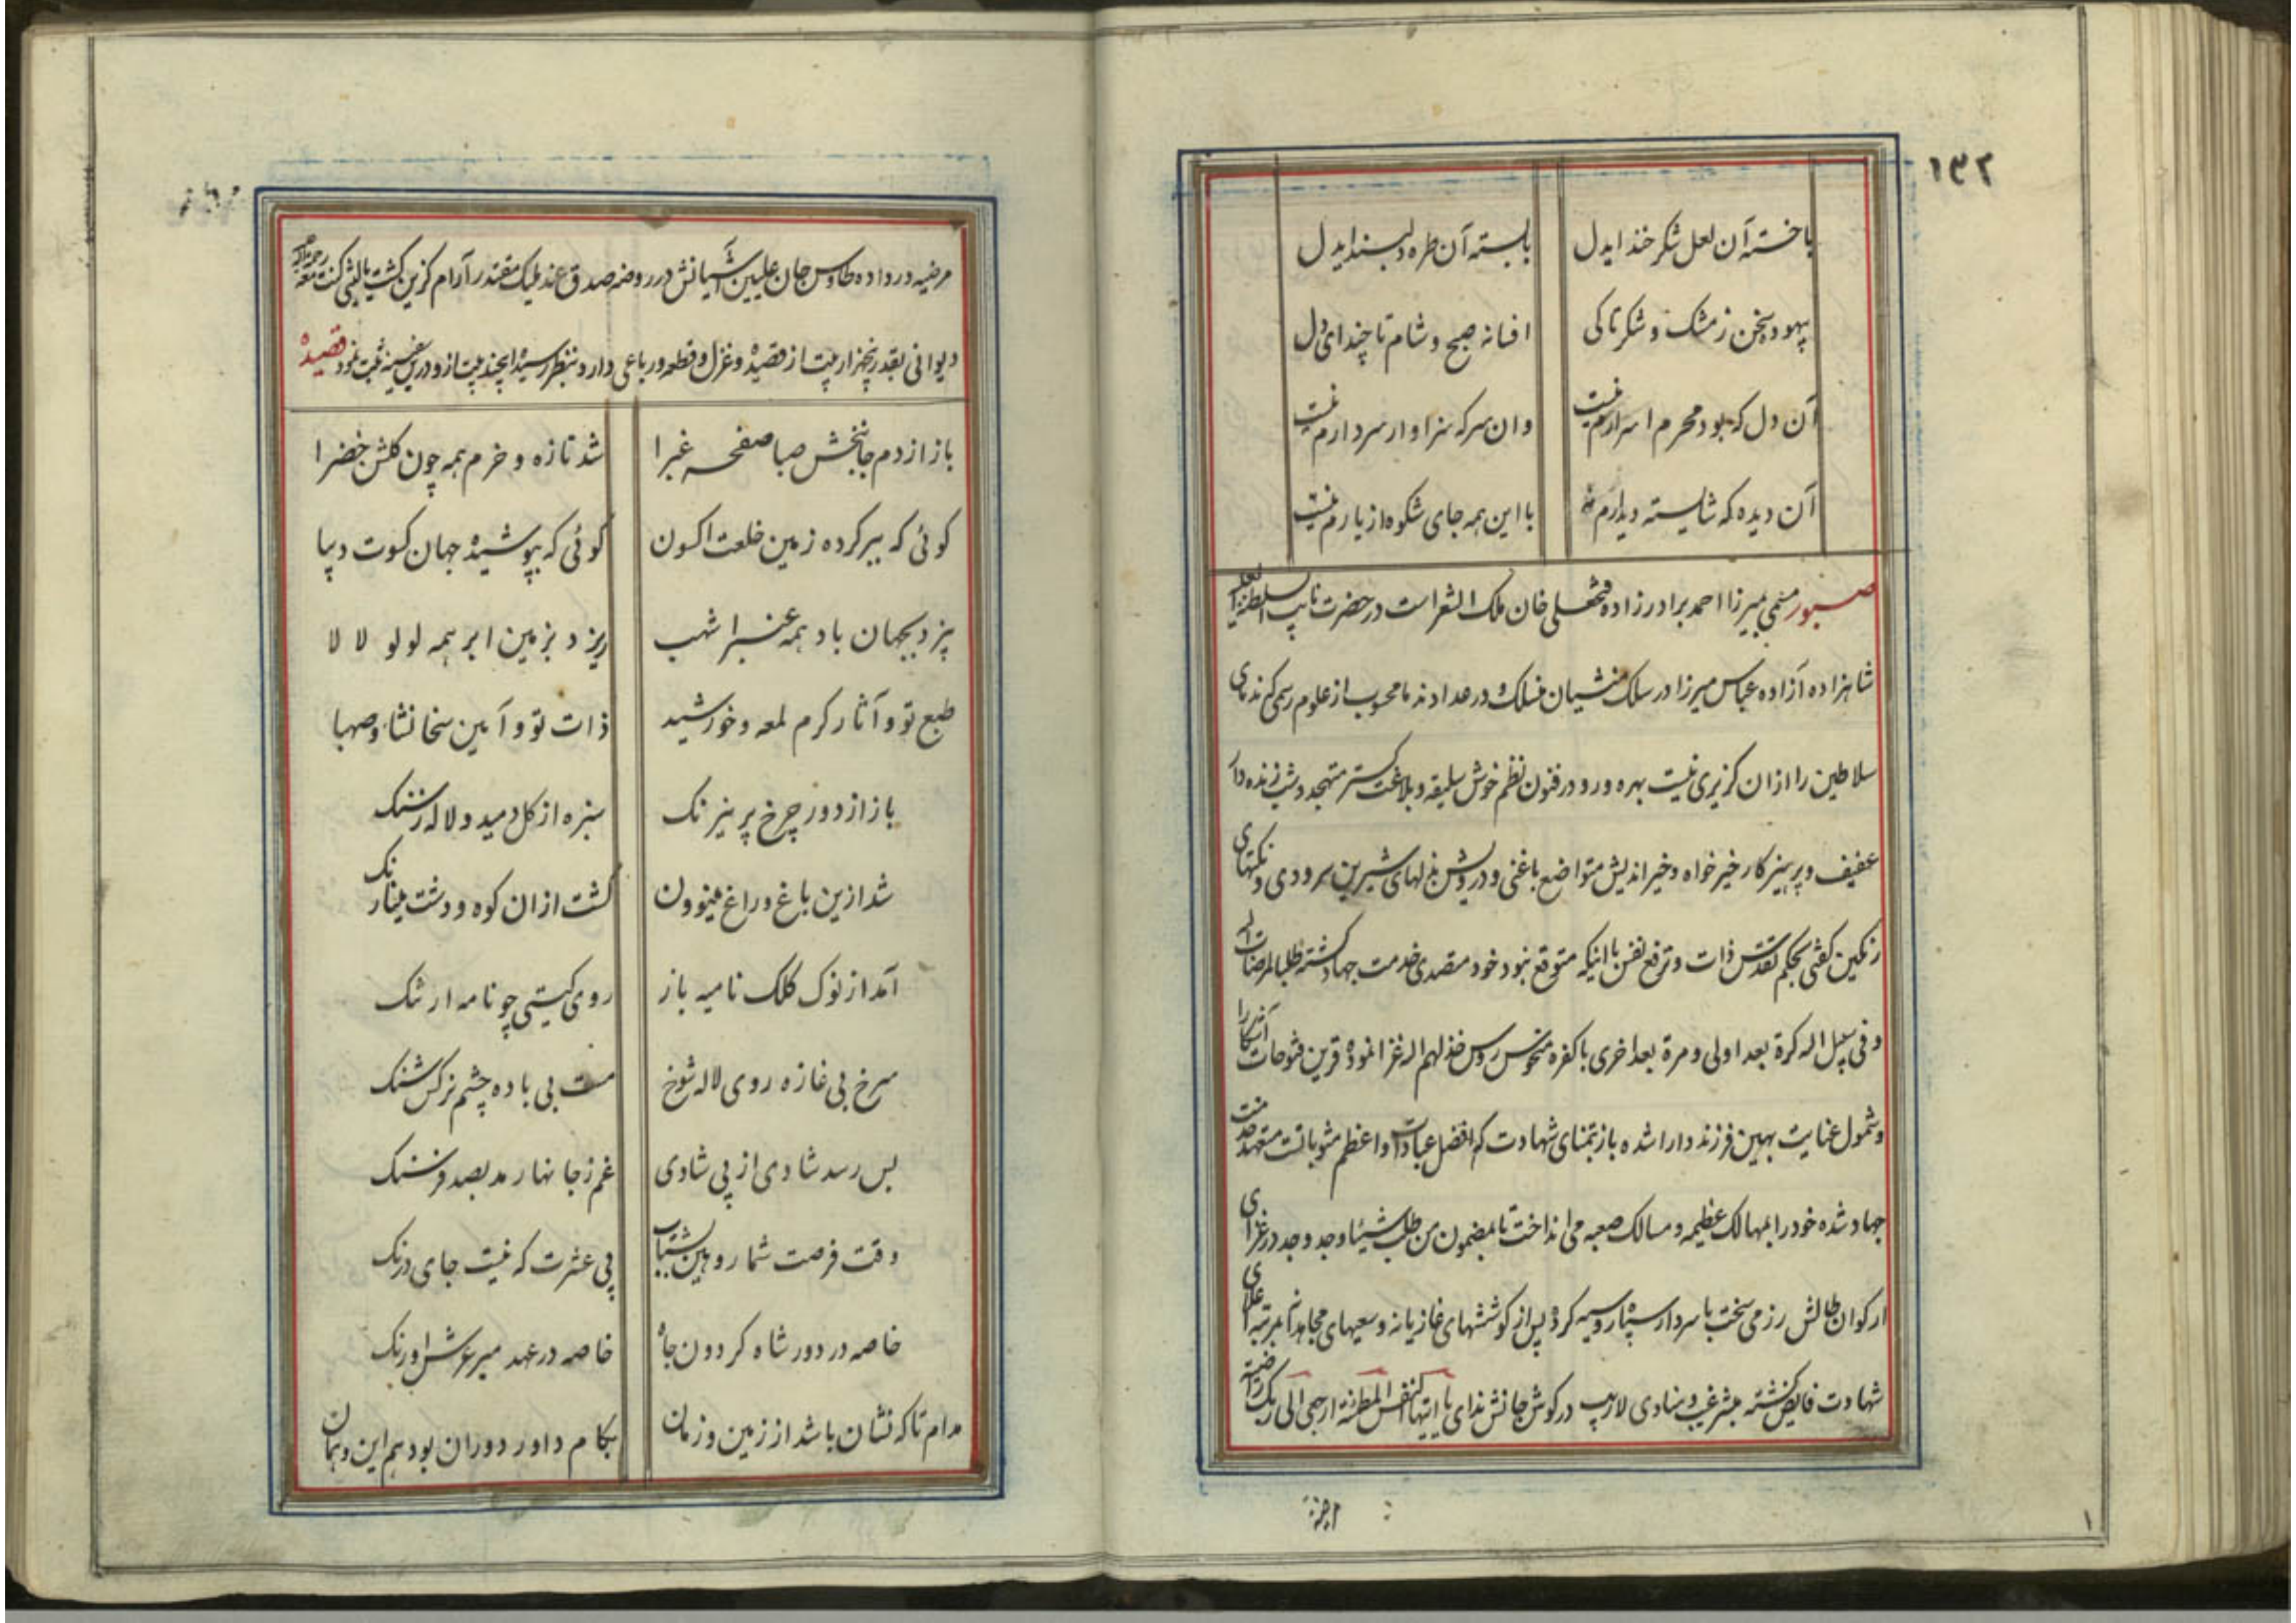 ۱۳۲
یا خسته آن لعل شکر خند ایدل
یا بسته آن طره دلبند ایدل
بیهوده سخن ز مشک و شکر تا کی
افسانه صبح و شام تا چند ای دل
آن دل که بود محرم اسرارم نیست
وان سر که سزاوار سر دارم نیست
آن دیده که شایسته دیدارم نه
با این همه جای شکوه از یارم نیست
صبور مسمی میرزا احمد برادرزاده فتحعلی خان ملک الشعراست در حضرت نایب السلطنة العلیه
شاهزاده آزاده عباس میرزا در سلک منشیان منسلک و در عداد ندما محسوب از علوم رسمی که ندمای
سلاطین را ازان کزیری نیست بهره ور و در فنون نظم خوش سلیقه و بلاغت کستر متهجد و شب زنده دار
عفیف و پرهیزکار خیرخواه و خیراندیش متواضع با غنی و درویش بذلهای شیرین سرودی و نکتهای
رنکین کفتی بحکم تقدس ذات و ترفع نفس با اینکه متوقع نبود خود متصدی خدمت جهاد کشته طلبا لمرضات اله
و فی سبیل اله کرة بعد اولی و مرة بعد اخری با کفره منحوس روس خذلهم اله غزا نموده قرین فتوحات آشکارا
و شمول عنایت بهین فرزند دارا شده باز بتمنای شهادت که افضل عبادات و اعظم مثوباتست متعهد خدمت
جهاد شده خود را بمهالک عظیمه و مسالک صعبه می انداخت تا بمضمون من طلب شیئا و جد وجد در غزای
ارکوان طالش رزمی سخت با سردار سپاه روسیه کرده پس از کوششهای غازیانه و سعیهای مجاهدانه بمرتبه اعلای
شهادت فایض کشته مبشر غیب و منادی لاریب در کوش جانش ندای یا ایتها النفس المطمئنة ارجعی الی ربک راضیة
مرضیه در داده طاوس جان علیین آشیانش در روضه صدق عند ملیک مقتدر آرام کزین کشت یا لیتنی کنت معه رحمه اله
دیوانی بقدر پنجهزار بیت از قصیده و غزل و قطعه و رباعی دارد بنظر رسیده این چند بیت ازو درین سفینه ثبت نمود قصیده
باز از دم جانبخش صبا صفحه غبرا
شد تازه و خرم همه چون کلشن خضرا
کوئی که ببر کرده زمین خلعت اکسون
کوئی که بپوشیده جهان کسوت دیبا
بیزد بجهان باد همه عنبر اشهب
ریزد بزمین ابر همه لولو لالا
طبع تو و آثار کرم لمعه و خورشید
ذات تو و آیین سخا نشاء و صهبا
باز از دور چرخ پر نیرنک
سبزه از کل دمید و لاله ز سنک
شد ازین باغ و راغ مینو ون
کشت ازان کوه و دشت مینا رنک
آمد از نوک کلک نامیه باز
روی کیتی چو نامه ارتنک
سرخ بی غازه روی لاله شوخ
مست بی باده چشم نرکس شنک
بس رسد شادی از پی شادی
غم ز جانها رمد بصد فرسنک
وقت فرصت شمار و هین بشتاب
پی عشرت که نیست جای درنک
خاصه در دور شاه کردون جاه
خاصه در عهد میر عرش اورنک
مدام تا که نشان باشد از زمین و زمان
بکام داور دوران بود هم این و همان